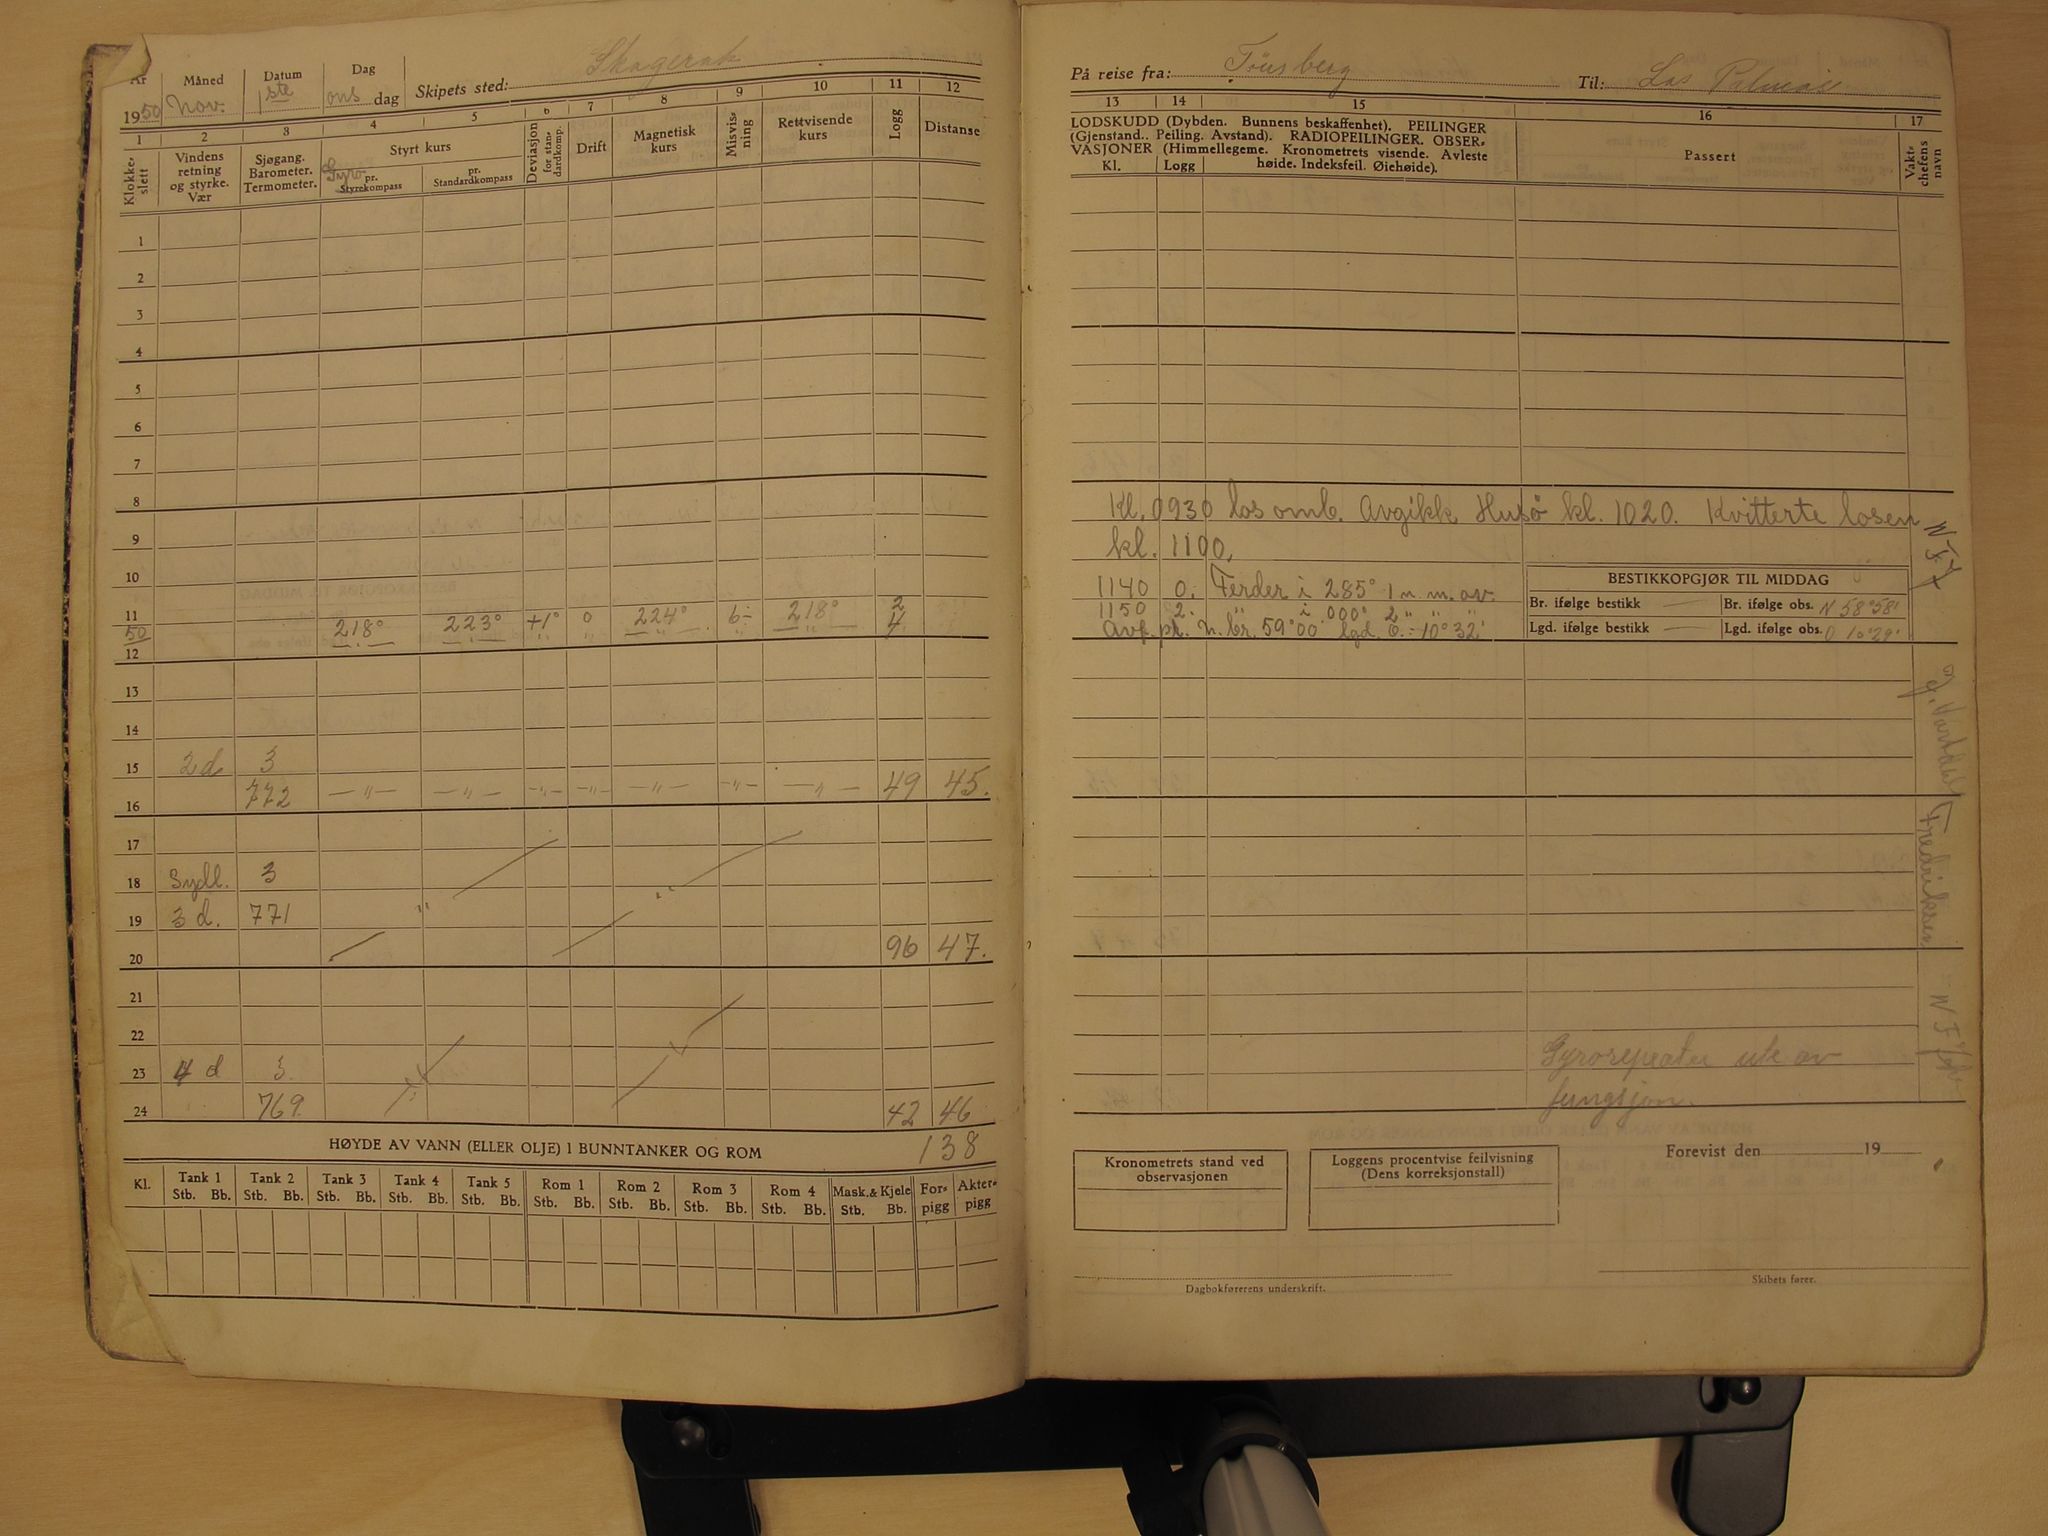 År Måned Datum Dag Skipets sted: Skagerak
1950 Nov. 1ste ons dag
1 2 3 4 5 6 7 8 9 10 11 12
Klokkeslett Vindens retning og styrke. Vær Sjøgang. Barometer. Termometer. Styrt kurs Gyro pr. Styrekompass pr. Standardkompass Deviasjon for standardkomp. Drift Magnetisk kurs Misvisning Rettvisende kurs Logg Distanse
1
2
3
4
5
6
7
8
9
10
11 218° 223° +1° 0 224° 6- 218° 2
50 4
12
13
14
15 2 d 3
16 772 —"— —"— —"— —"— —"— —"— —"— 49 45.
17
18 Sydl. 3
19 3 d. 771
20 96 47.
21
22
23 4 d 3.
24 769 42 46
HØYDE AV VANN (ELLER OLJE) I BUNNTANKER OG ROM 138
Kl. Tank 1 Tank 2 Tank 3 Tank 4 Tank 5 Rom 1 Rom 2 Rom 3 Rom 4 Mask. & Kjele Forpigg Akterpigg
Stb. Bb. Stb. Bb. Stb. Bb. Stb. Bb. Stb. Bb. Stb. Bb. Stb. Bb. Stb. Bb. Stb. Bb. Stb. Bb.
På reise fra: Tønsberg Til: Las Palmas
13 14 15 16 17
LODSKUDD (Dybden. Bunnens beskaffenhet). PEILINGER
(Gjenstand.. Peiling. Avstand). RADIOPEILINGER. OBSER-
VASJONER (Himmellegeme. Kronometrets visende. Avleste
Kl. Logg høide. Indeksfeil. Øiehøide).
Passert
Vaktchefens navn
Kl. 0930 los omb. Avgikk Husø kl. 1020. Kvitterte losen
kl. 1100.
1140 0. Ferder i 285° 1 n.m. av.
1150 2. " i 000° 2 " "
Avf. pl. N. br. 59°00' lgd. Ø. = 10°32'
BESTIKKOPGJØR TIL MIDDAG
Br. ifølge bestikk — Br. ifølge obs. N 58°58'
Lgd. ifølge bestikk — Lgd. ifølge obs. O 10°29'
Fredriksen
Gyrorepeater ute av
fungsjon.
Kronometrets stand ved
observasjonen
Loggens procentvise feilvisning
(Dens korreksjonstall)
Forevist den 19
Dagbokførerens underskrift.
Skibets fører.